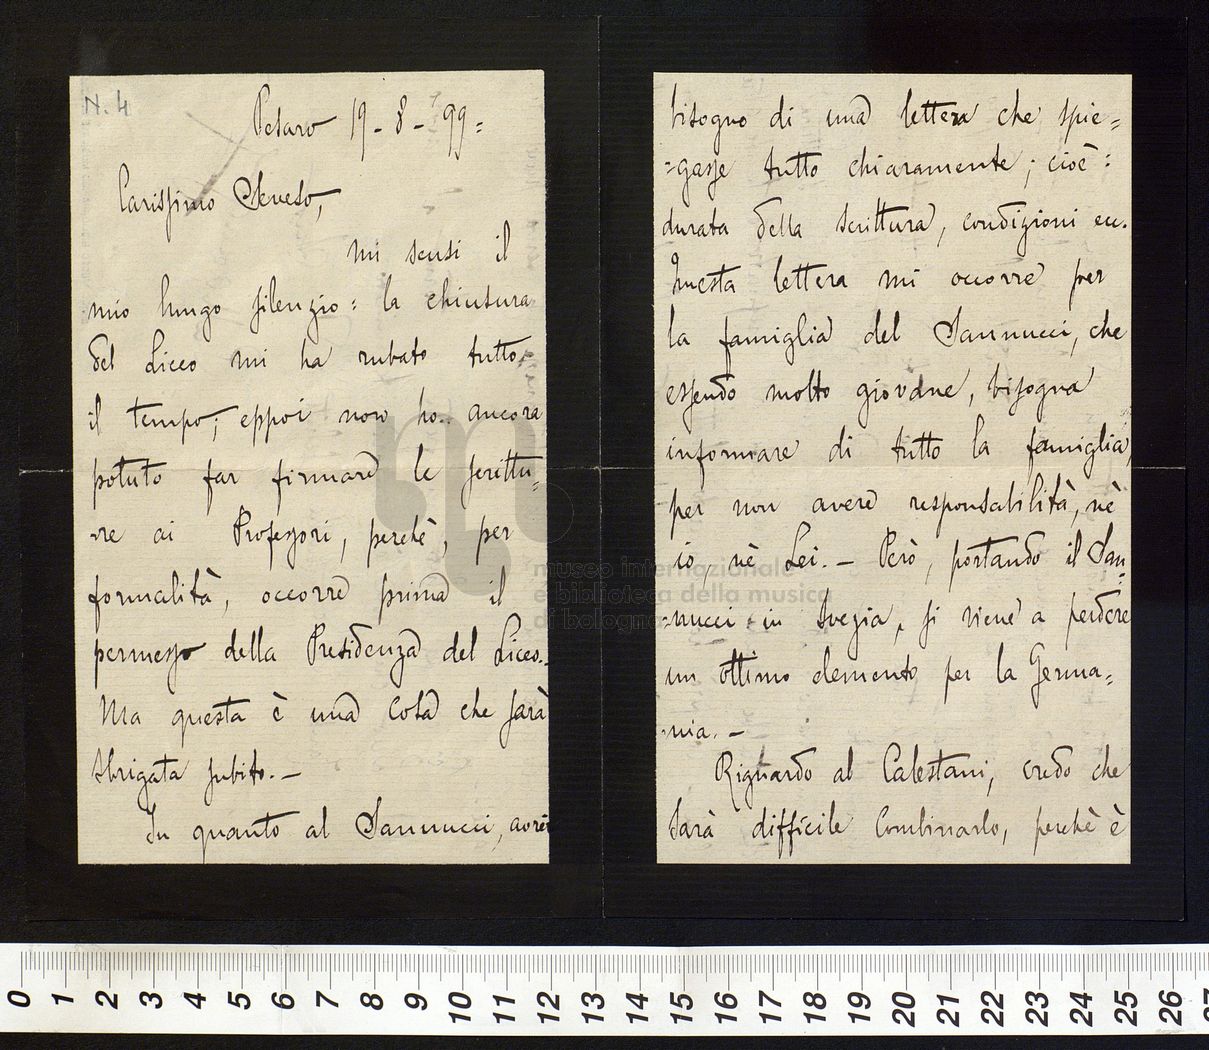 N. 4
Pesaro 19 - 8 - 99 =
Carissimo Seveso,
mi scusi il
mio lungo silenzio: la chiusura
del Liceo mi ha rubato tutto
il tempo; eppoi non ho.. ancora
potuto far firmare le scrittu=
re ai Professori, perchè, per
formalità, occorre prima il
permesso della Presidenza del Liceo.-
Ma questa è una cosa che sarà
sbrigata subito. -
In quanto al Iannucci, avrei
bisogno di una lettera che spie=
=gasse tutto chiaramente; cioè:
durata della scrittura, condizioni ecc.
Questa lettera mi occorre per
la famiglia del Iannucci, che
essendo molto giovane, bisogna
informare di tutto la famiglia,
per non avere responsabilità, nè
io, nè Lei. - Però, portando il Ian=
=nucci in Svezia, si viene a perdere
un ottimo elemento per la Germa=
nia. -
Riguardo al Calestani, credo che
sarà difficile combinarlo, perchè è
museo internazionale
e biblioteca della musica
di bologna
0 1 2 3 4 5 6 7 8 9 10 11 12 13 14 15 16 17 18 19 20 21 22 23 24 25 26 27